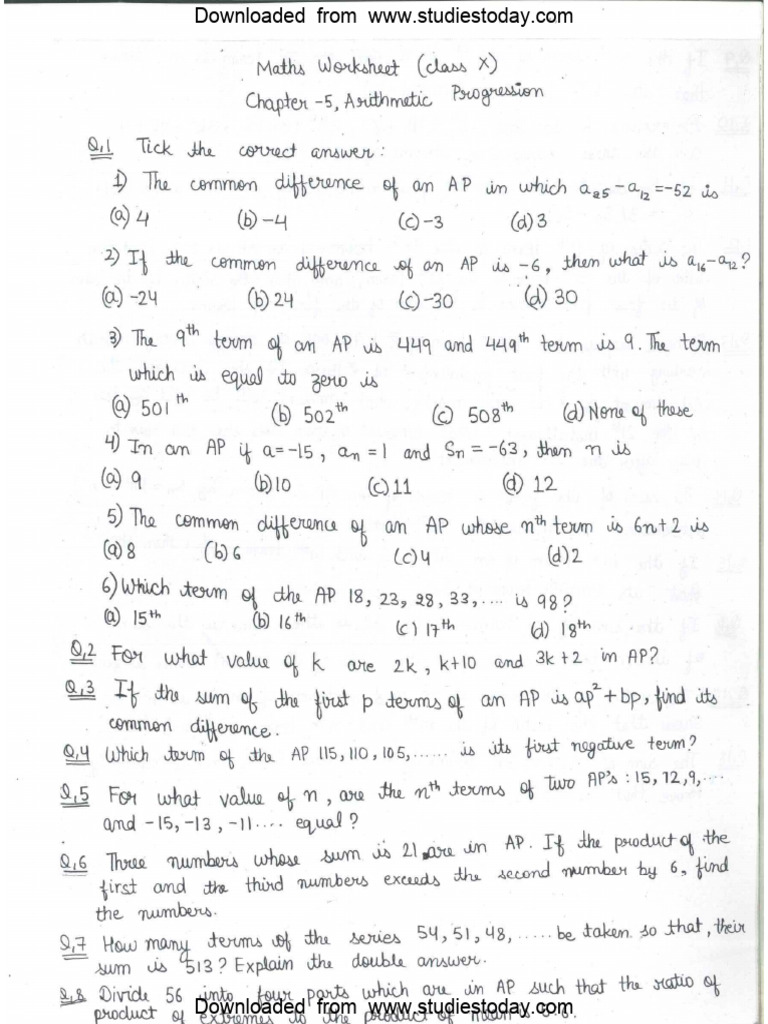 Downloaded from www.studiestoday.com
Maths Worksheet (class X)
Chapter -5, Arithmetic Progression
Q.1 Tick the correct answer :
1) The common difference of an AP in which a₂₅ - a₁₂ = -52 is
(a) 4 (b) -4 (c) -3 (d) 3
2) If the common difference of an AP is -6, then what is a₁₆ - a₁₂?
(a) -24 (b) 24 (c) -30 (d) 30
3) The 9th term of an AP is 449 and 449th term is 9. The term
which is equal to zero is
(a) 501th (b) 502th (c) 508th (d) None of these
4) In an AP if a = -15, aₙ = 1 and Sₙ = -63, then n is
(a) 9 (b) 10 (c) 11 (d) 12
5) The common difference of an AP whose nth term is 6n+2 is
(a) 8 (b) 6 (c) 4 (d) 2
6) Which term of the AP 18, 23, 28, 33, .... is 98?
(a) 15th (b) 16th (c) 17th (d) 18th
Q.2 For what value of k are 2k, k+10 and 3k+2 in AP?
Q.3 If the sum of the first p terms of an AP is ap² + bp, find its
common difference.
Q.4 Which term of the AP 115, 110, 105, ...... is its first negative term?
Q.5 For what value of n, are the nth terms of two AP's : 15, 12, 9, ....
and -15, -13, -11 .... equal?
Q.6 Three numbers whose sum is 21 are in AP. If the product of the
first and the third numbers exceeds the second number by 6, find
the numbers.
Q.7 How many terms of the series 54, 51, 48, ..... be taken so that, their
sum is 513? Explain the double answer.
Q.8 Divide 56 into four parts which are in AP such that the ratio of
product of extremes to the product of
Downloaded from www.studiestoday.com